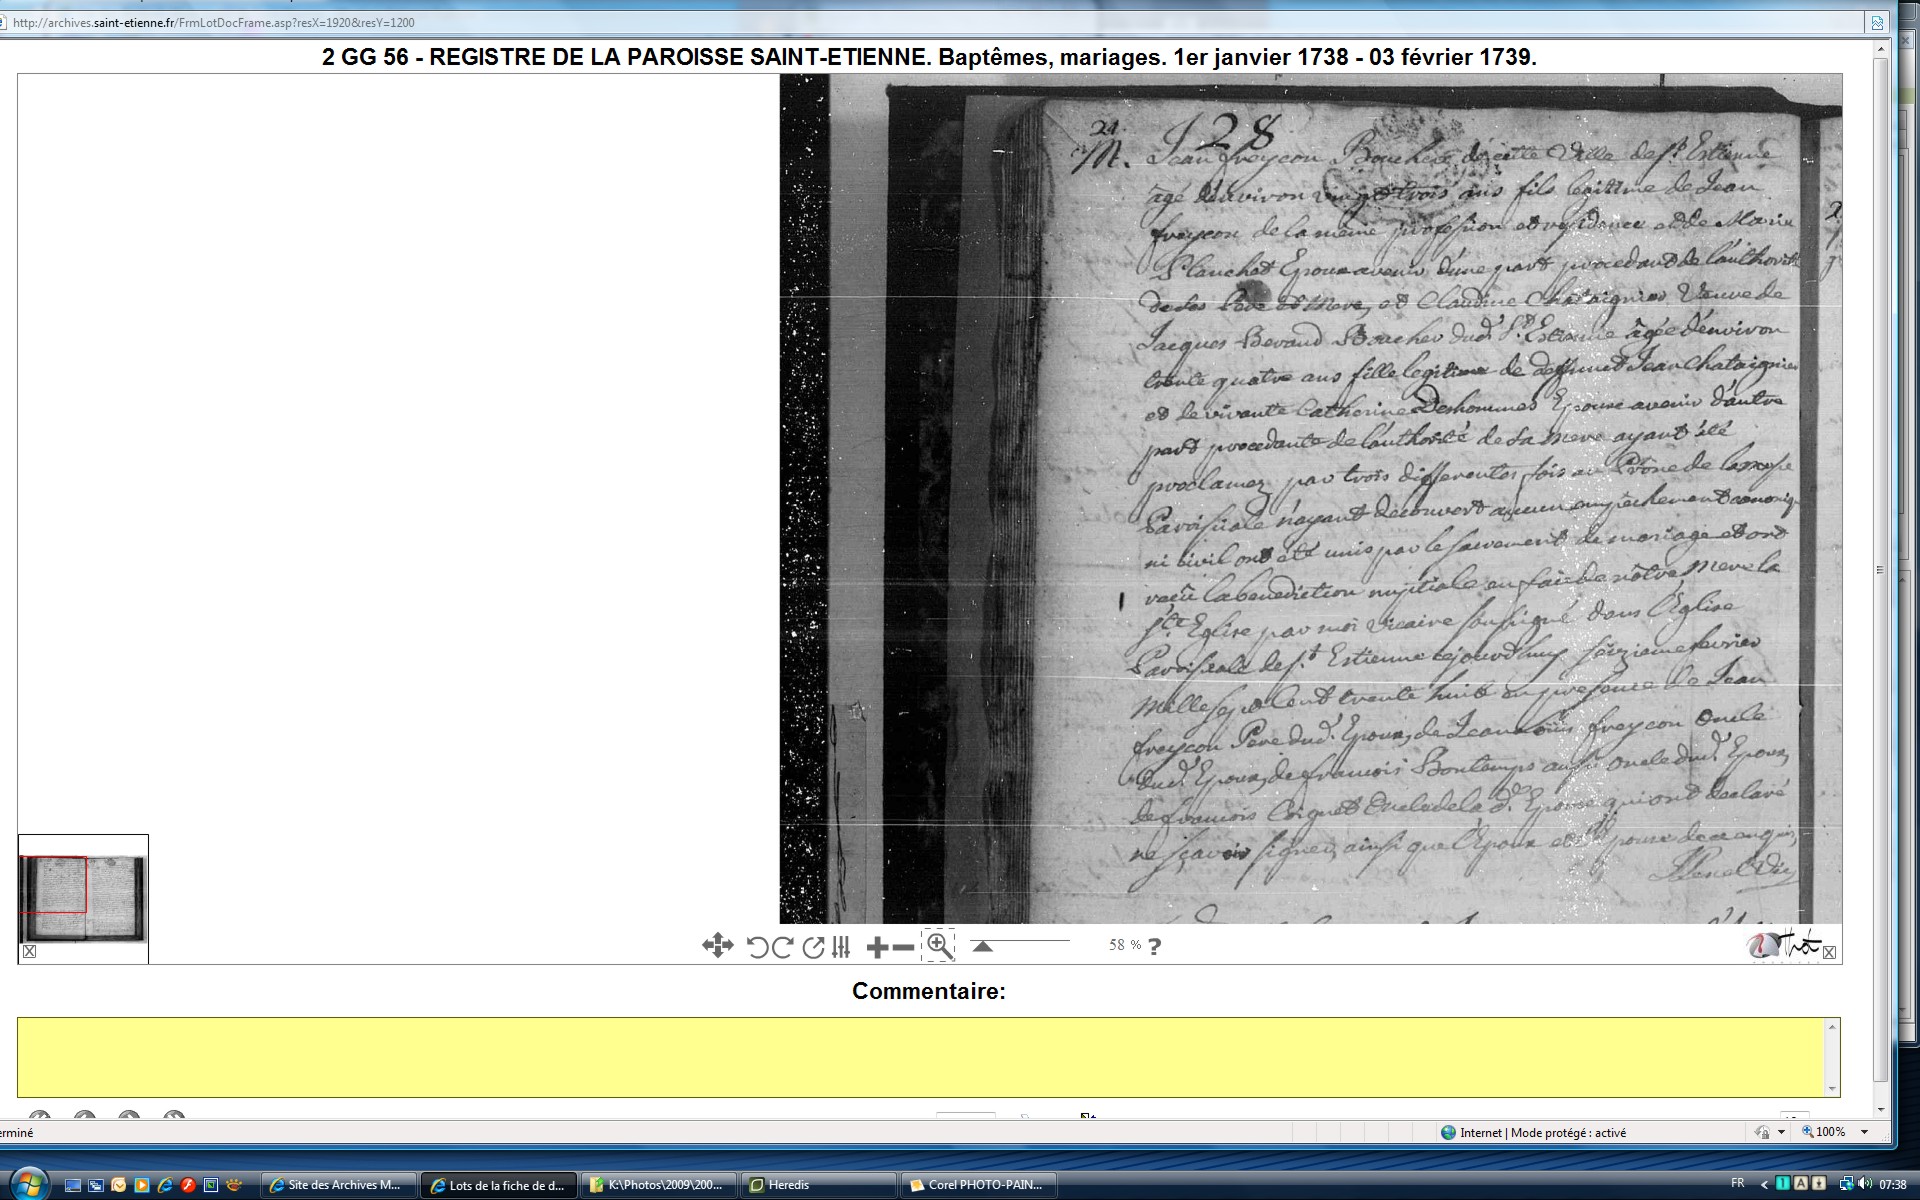 http://archives.saint-etienne.fr/FrmLotDocFrame.asp?resX=1920&resY=1200
2 GG 56 - REGISTRE DE LA PAROISSE SAINT-ETIENNE. Baptêmes, mariages. 1er janvier 1738 - 03 février 1739.
28
21.
M. Jean freycon Boucher de cette Ville de st Estienne
âgé d'environ vingt trois ans fils legitime de Jean
freycon de la même profession et residence et de Marie
Planchet Epoux avenir d'une part procedant de l'authorité
de ses Pere et Mere, et Claudine Chataignier Veuve de
Jacques Beraud Boucher dud. St Estienne âgée d'environ
trente quatre ans fille legitime de deffunct Jean Chataignier
et de vivante Catherine Deshommes Epouse avenir d'autre
part procedante de l'authorité de sa Mere ayant été
proclamez par trois differentes fois au Prône de la messe
Paroissiale n'ayant decouvert aucun empêchement canoniq
ni civil ont été unis par le sacrement de mariage et ont
reçû la benediction nuptiale en face de nôtre Mere la
ste Eglise par moi vicaire soussigné dans l'Eglise
Paroissiale de st Estienne cejourd'huy seizieme fevrier
Mille sept Cent trente huit en presence de Jean
freycon Pere dud. Epoux, de Jean Loüis freycon Oncle
dud. Epoux, de francois Bontemps aussi Oncle dud. Epoux,
de francois Coignet Oncle de la de Epouse qui ont declaré
ne sçavoir signer, ainsi que l'Epoux et l'Epouse de ce enquis,
58 % ?
Thot
Commentaire:
erminé
Internet | Mode protégé : activé
100%
Site des Archives M...
Lots de la fiche de d...
K:\Photos\2009\200...
Heredis
Corel PHOTO-PAIN...
FR
07:38